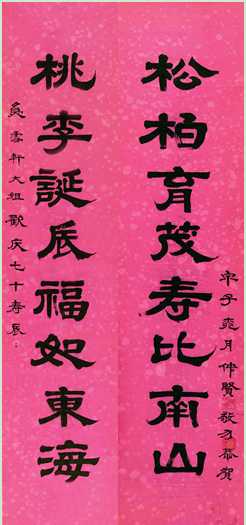 子月仲賢敬恭賀
松柏育茂寿比南山
桃李誕辰福如東海
雪軒大姐歡庆七十寿辰